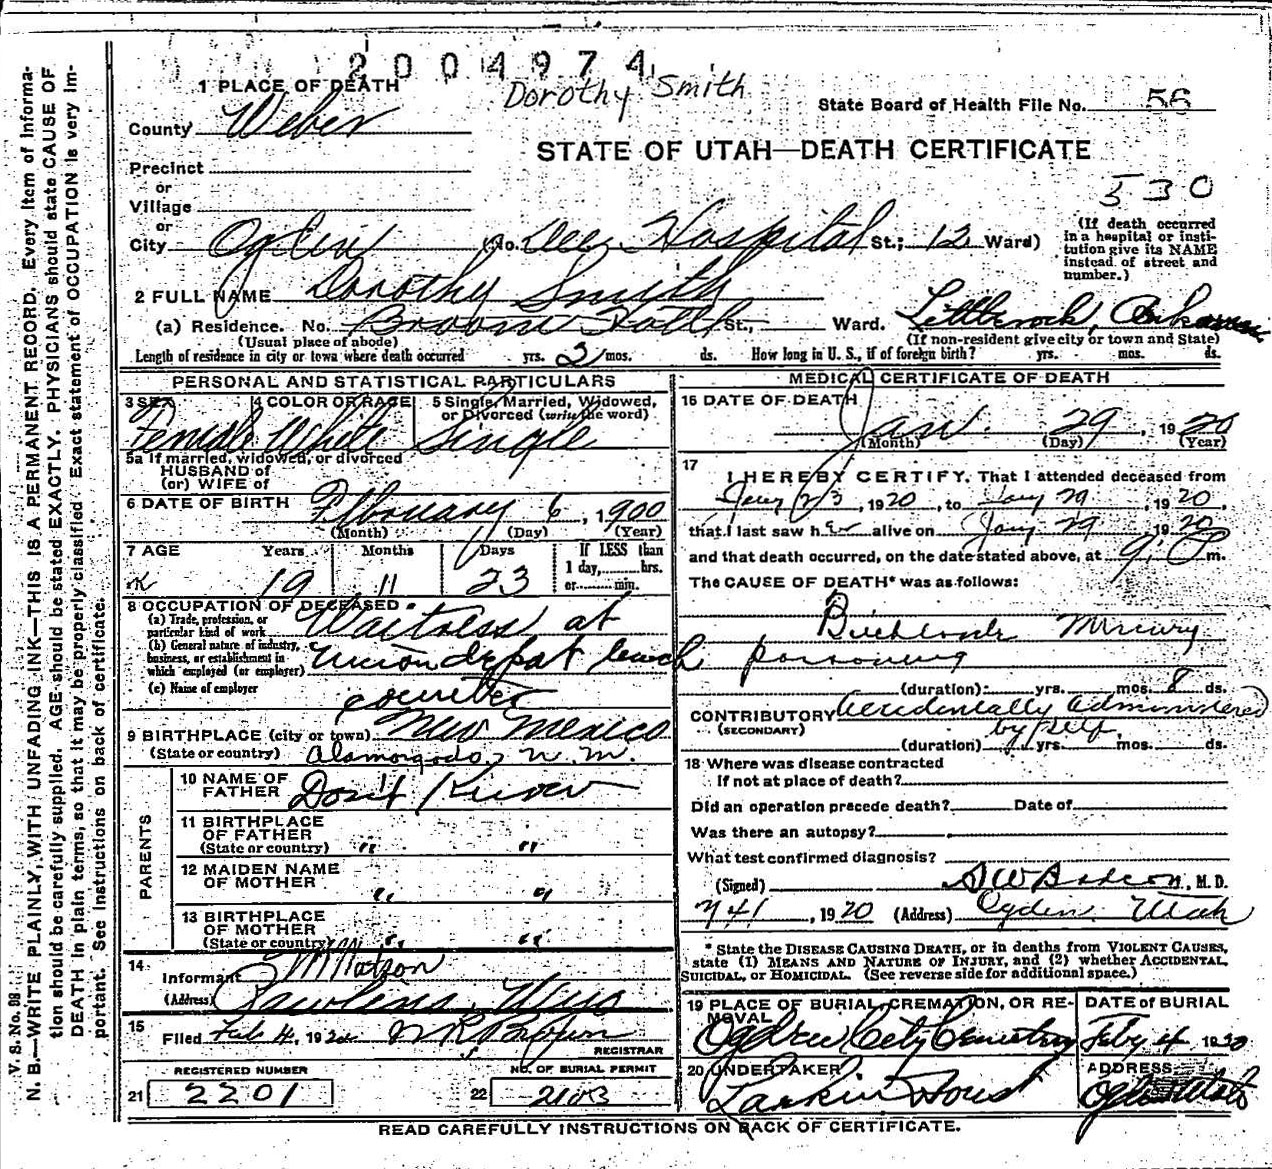 2004974
Dorothy Smith
1 PLACE OF DEATH
State Board of Health File No. 56
County Weber
STATE OF UTAH—DEATH CERTIFICATE
Precinct
or
Village
or
530
City Ogden (No. Dee Hospital St.; 12 Ward)
(If death occurred in a hospital or insti-tution give its NAME instead of street and number.)
2 FULL NAME Dorothy Smith
(a) Residence. No. Broom Hotel St., Ward. Littlerock, Arkansas
(Usual place of abode) (If non-resident give city or town and State)
Length of residence in city or town where death occurred yrs. 2 mos. ds. How long in U. S., if of foreign birth? yrs. mos. ds.
PERSONAL AND STATISTICAL PARTICULARS
3 SEX 4 COLOR OR RACE 5 Single, Married, Widowed, or Divorced (write the word)
Female White Single
5a If married, widowed, or divorced
HUSBAND of
(or) WIFE of
6 DATE OF BIRTH February 6, 1900
(Month) (Day) (Year)
7 AGE Years Months Days If LESS than
1 day, hrs.
or min.
19 11 23
8 OCCUPATION OF DECEASED
(a) Trade, profession, or particular kind of work Waitress at
(b) General nature of industry, business, or establishment in which employed (or employer) Union depot lunch
(c) Name of employer counter
9 BIRTHPLACE (city or town) New Mexico
(State or country) Alamorgodo, N. M.
PARENTS
10 NAME OF FATHER Don't Know
11 BIRTHPLACE OF FATHER (State or country) " "
12 MAIDEN NAME OF MOTHER " "
13 BIRTHPLACE OF MOTHER (State or country) " "
14 Informant Watson
(Address) Rawlins, Wyo
15 Filed Feb 4, 1920
REGISTRAR
REGISTERED NUMBER NO. OF BURIAL PERMIT
21 2201 22 2103
MEDICAL CERTIFICATE OF DEATH
16 DATE OF DEATH
Jan. 29, 1920
(Month) (Day) (Year)
17 I HEREBY CERTIFY, That I attended deceased from
Jany 23, 1920, to Jany 29, 1920,
that I last saw her alive on Jany 29 1920
and that death occurred, on the date stated above, at 9: P m.
The CAUSE OF DEATH* was as follows:
Bichloride Mercury
poisoning
(duration) yrs. mos. 8 ds.
CONTRIBUTORY Accidentally administered
(SECONDARY) by self.
(duration) yrs. mos. ds.
18 Where was disease contracted
If not at place of death?
Did an operation precede death? Date of
Was there an autopsy?
What test confirmed diagnosis?
(Signed) M. D.
1920 (Address) Ogden Utah
* State the DISEASE CAUSING DEATH, or in deaths from VIOLENT CAUSES,
state (1) MEANS AND NATURE OF INJURY, and (2) whether ACCIDENTAL,
SUICIDAL, or HOMICIDAL. (See reverse side for additional space.)
19 PLACE OF BURIAL, CREMATION, OR RE-MOVAL DATE of BURIAL
Ogden City Cemetery Feby 4 1920
20 UNDERTAKER ADDRESS
Larkin Ogden Utah
READ CAREFULLY INSTRUCTIONS ON BACK OF CERTIFICATE.
V. S. No. 98
N. B.—WRITE PLAINLY, WITH UNFADING INK—THIS IS A PERMANENT RECORD. Every item of informa-
tion should be carefully supplied. AGE should be stated EXACTLY. PHYSICIANS should state CAUSE OF
DEATH in plain terms, so that it may be properly classified. Exact statement of OCCUPATION is very im-
portant. See instructions on back of certificate.